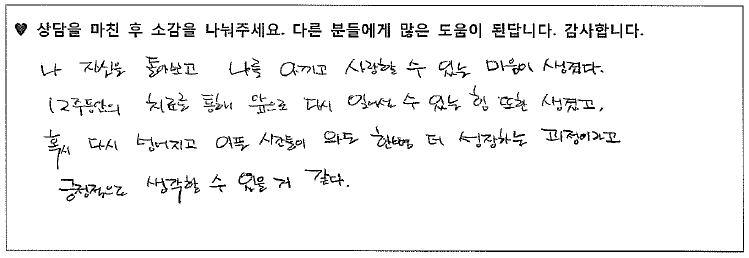 ♥ 상담을 마친 후 소감을 나눠주세요. 다른 분들에게 많은 도움이 된답니다. 감사합니다.
나 자신을 돌아보고 나를 아끼고 사랑할 수 있는 마음이 생겼다.
12주동안의 치료를 통해 앞으로 다시 일어날 수 있는 힘 또한 생겼고,
혹시 다시 넘어지고 아픈 시간들이 와도 한번 더 성장하는 과정이라고
긍정적으로 생각할 수 있을 거 같다.